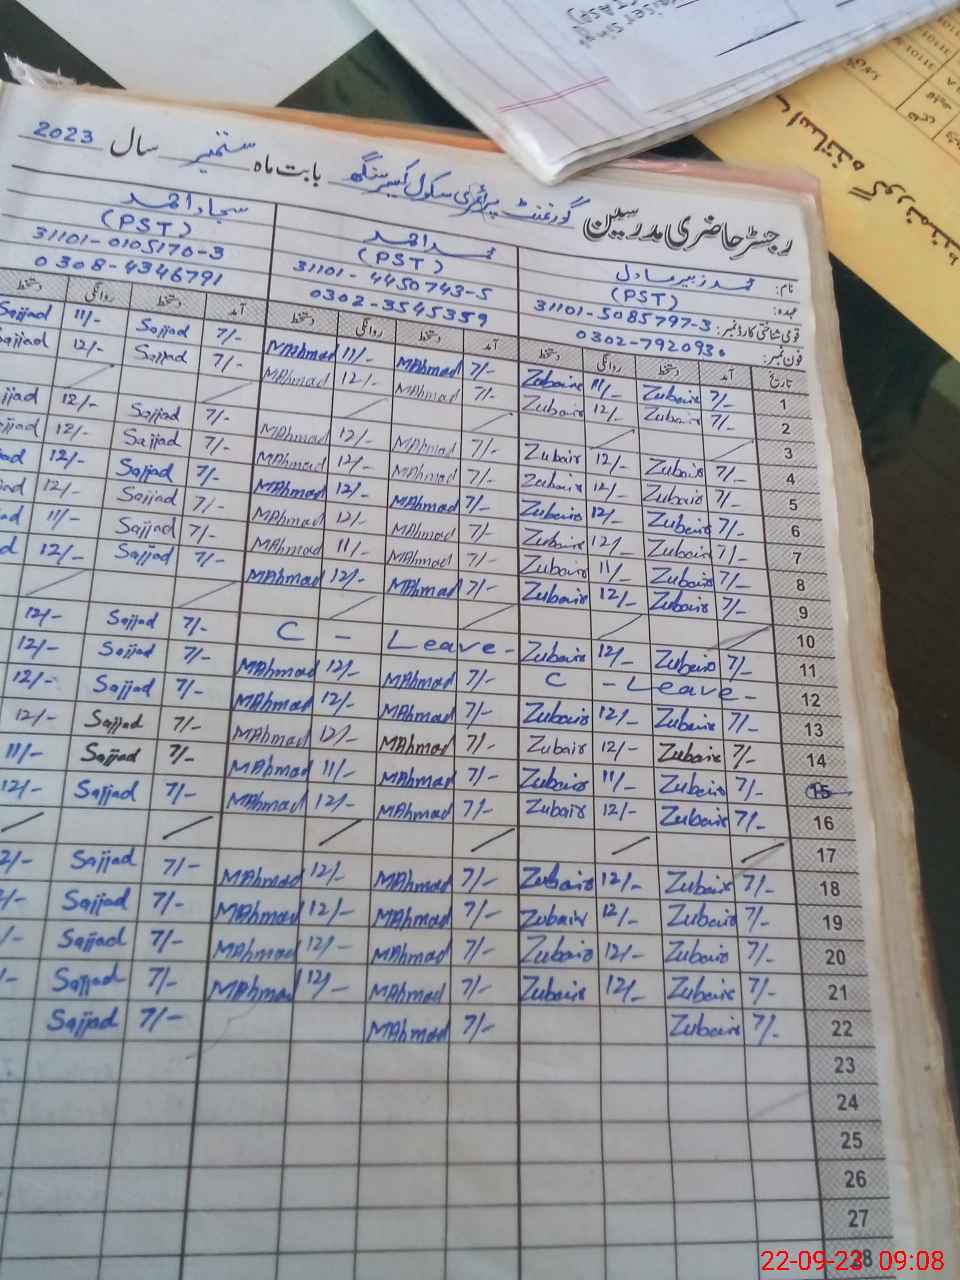 رجسٹر حاضری مدرسین گورنمنٹ پرائمری سکول کیسر سنگھ بابت ماہ ستمبر سال 2023
نام: محمد زبیر عادل محمد احمد سجاد احمد
عہدہ: (PST) (PST) (PST)
قومی شناختی کارڈ نمبر: 31101-5085797-3 31101-4450743-5 31101-0105170-3
فون نمبر: 0302-7920930 0302-3545359 0308-4346791
تاریخ آمد دستخط روانگی دستخط آمد دستخط روانگی دستخط آمد دستخط روانگی دستخط
1 7/- Zubair 11/- Zubair 7/- MAhmad 11/- MAhmad 7/- Sajjad 11/- Sajjad
2 7/- Zubair 12/- Zubair 7/- MAhmad 12/- MAhmad 7/- Sajjad 12/-
3
4 7/- Zubair 12/- Zubair 7/- MAhmad 12/- MAhmad 7/- Sajjad 12/-
5 7/- Zubair 12/- Zubair 7/- MAhmad 12/- MAhmad 7/- Sajjad 12/-
6 7/- Zubair 12/- Zubair 7/- MAhmad 12/- MAhmad 7/- Sajjad 12/-
7 7/- Zubair 12/- Zubair 7/- MAhmad 12/- MAhmad 7/- Sajjad 12/-
8 7/- Zubair 11/- Zubair 7/- MAhmad 11/- MAhmad 7/- Sajjad 11/-
9 7/- Zubair 12/- Zubair 7/- MAhmad 12/- MAhmad 7/- Sajjad 12/-
10
11 7/- Zubair 12/- Zubair C - Leave - 7/- Sajjad 12/-
12 C - Leave - 7/- MAhmad 12/- MAhmad 7/- Sajjad 12/-
13 7/- Zubair 12/- Zubair 7/- MAhmad 12/- MAhmad 7/- Sajjad 12/-
14 7/- Zubair 12/- Zubair 7/- MAhmad 12/- MAhmad 7/- Sajjad 12/-
15 7/- Zubair 11/- Zubair 7/- MAhmad 11/- MAhmad 7/- Sajjad 11/-
16 7/- Zubair 12/- Zubair 7/- MAhmad 12/- MAhmad 7/- Sajjad 12/-
17
18 7/- Zubair 12/- Zubair 7/- MAhmad 12/- MAhmad 7/- Sajjad
19 7/- Zubair 12/- Zubair 7/- MAhmad 12/- MAhmad 7/- Sajjad
20 7/- Zubair 12/- Zubair 7/- MAhmad 12/- MAhmad 7/- Sajjad
21 7/- Zubair 12/- Zubair 7/- MAhmad 12/- MAhmad 7/- Sajjad
22 7/- Zubair 7/- MAhmad 7/- Sajjad
23
24
25
26
27
28
22-09-23 09:08